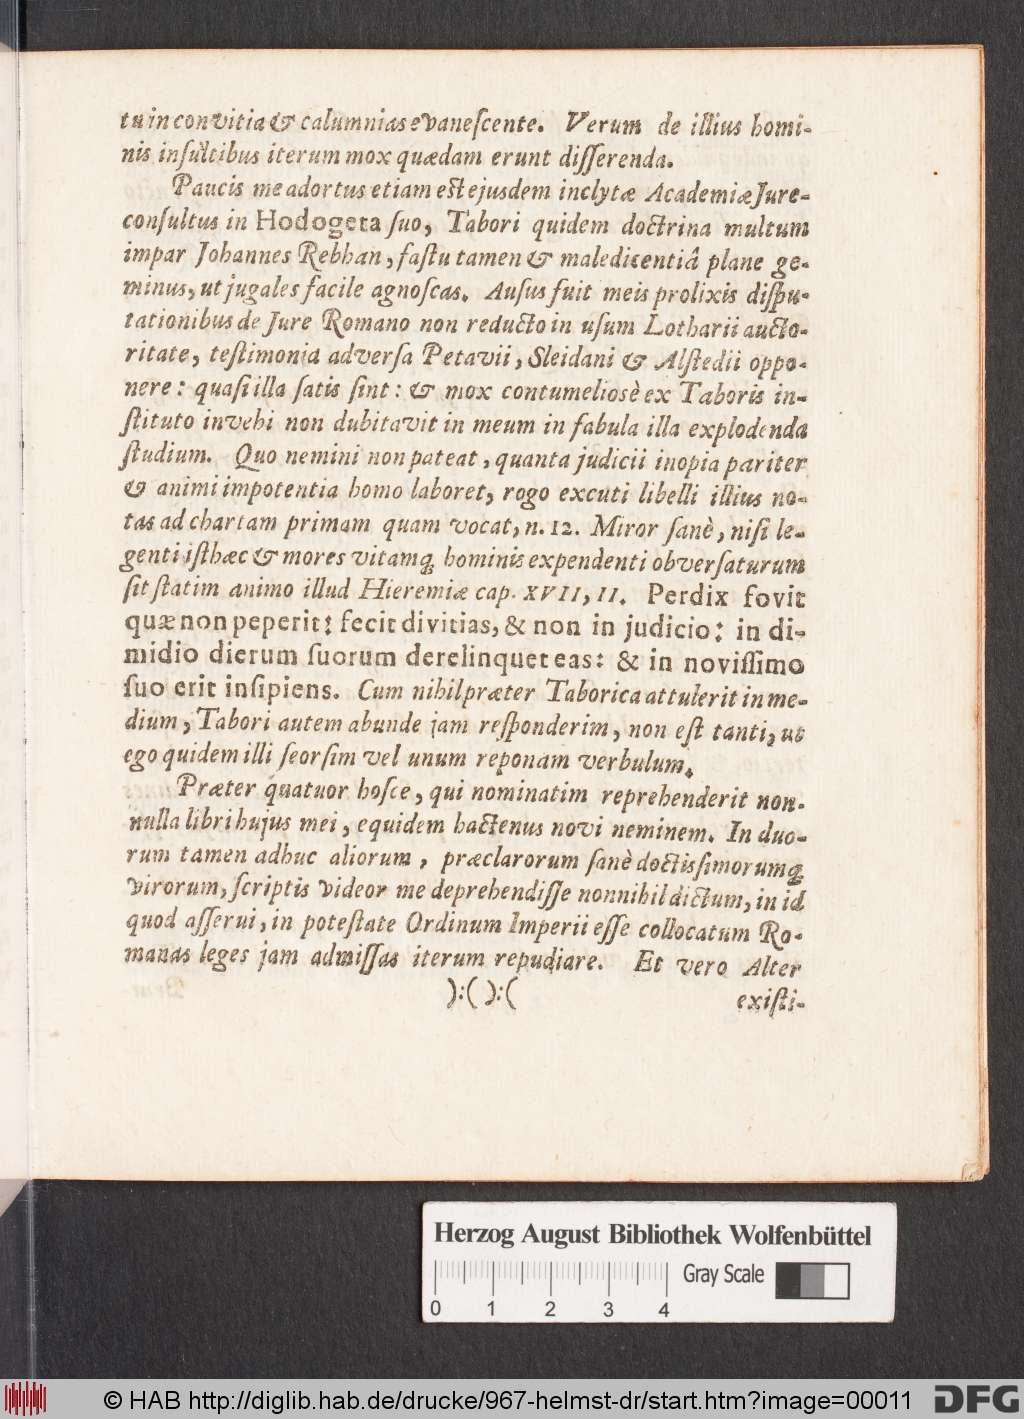 tu in convitia & calumnias evanescente. Verum de illius homi-
nis insultibus iterum mox quædam erunt disserenda.
Paucis me adortus etiam est ejusdem inclytæ Academiæ Jure-
consultus in Hodogeta suo, Tabori quidem doctrina multum
impar Johannes Rebhan, fastu tamen & maledicentiâ plane ge-
minus, ut jugales facile agnoscas. Ausus fuit meis prolixis dispu-
tationibus de Jure Romano non reducto in usum Lotharii aucto-
ritate, testimonia adversa Petavii, Sleidani & Alstedii oppo-
nere: quasi illa satis sint: & mox contumeliosè ex Taboris in-
stituto invehi non dubitavit in meum in fabula illa explodenda
studium. Quo nemini non pateat, quanta judicii inopia pariter
& animi impotentia homo laboret, rogo excuti libelli illius no-
tas ad chartam primam quam vocat, n. 12. Miror sanè, nisi le-
genti isthæc & mores vitamq; hominis expendenti obversaturum
sit statim animo illud Hieremiæ cap. XVII, 11. Perdix fovit
quæ non peperit: fecit divitias, & non in judicio: in di-
midio dierum suorum derelinquet eas: & in novissimo
suo erit insipiens. Cum nihil præter Taborica attulerit in me-
dium, Tabori autem abunde jam responderim, non est tanti, ut
ego quidem illi seorsim vel unum reponam verbulum.
Præter quatuor hosce, qui nominatim reprehenderit non-
nulla libri hujus mei, equidem hactenus novi neminem. In duo-
rum tamen adhuc aliorum, præclarorum sanè doctissimorumq;
virorum, scriptis videor me deprehendisse nonnihil dictum, in id
quod asserui, in potestate Ordinum Imperii esse collocatum Ro-
manas leges jam admissas iterum repudiare. Et vero Alter
):( ):( existi-
Herzog August Bibliothek Wolfenbüttel
Gray Scale
0 1 2 3 4
© HAB http://diglib.hab.de/drucke/967-helmst-dr/start.htm?image=00011 DFG